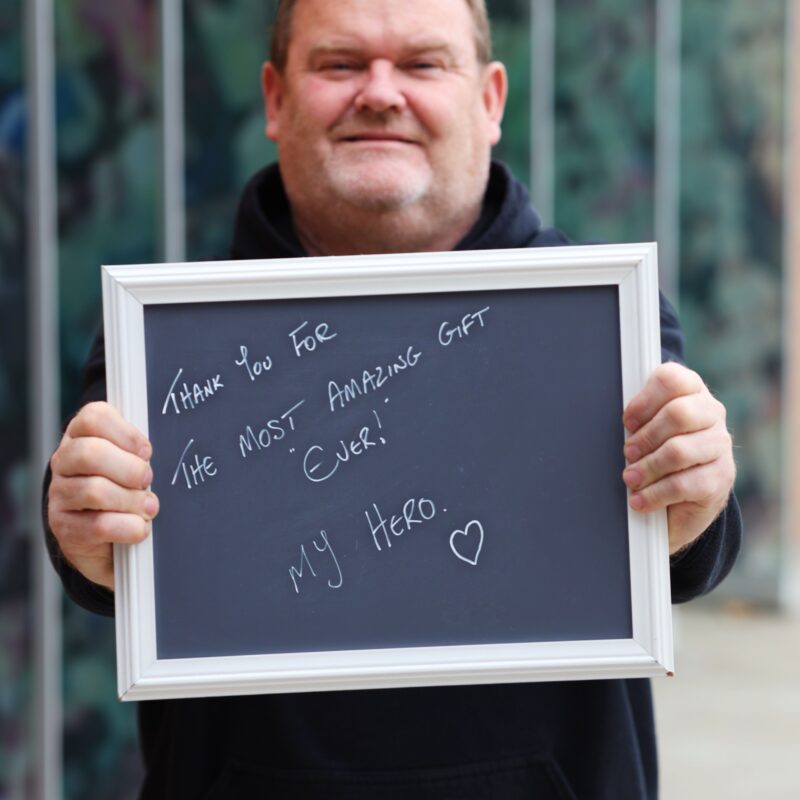 THANK YOU FOR
THE MOST AMAZING GIFT
"EVER!"
MY HERO. ♡